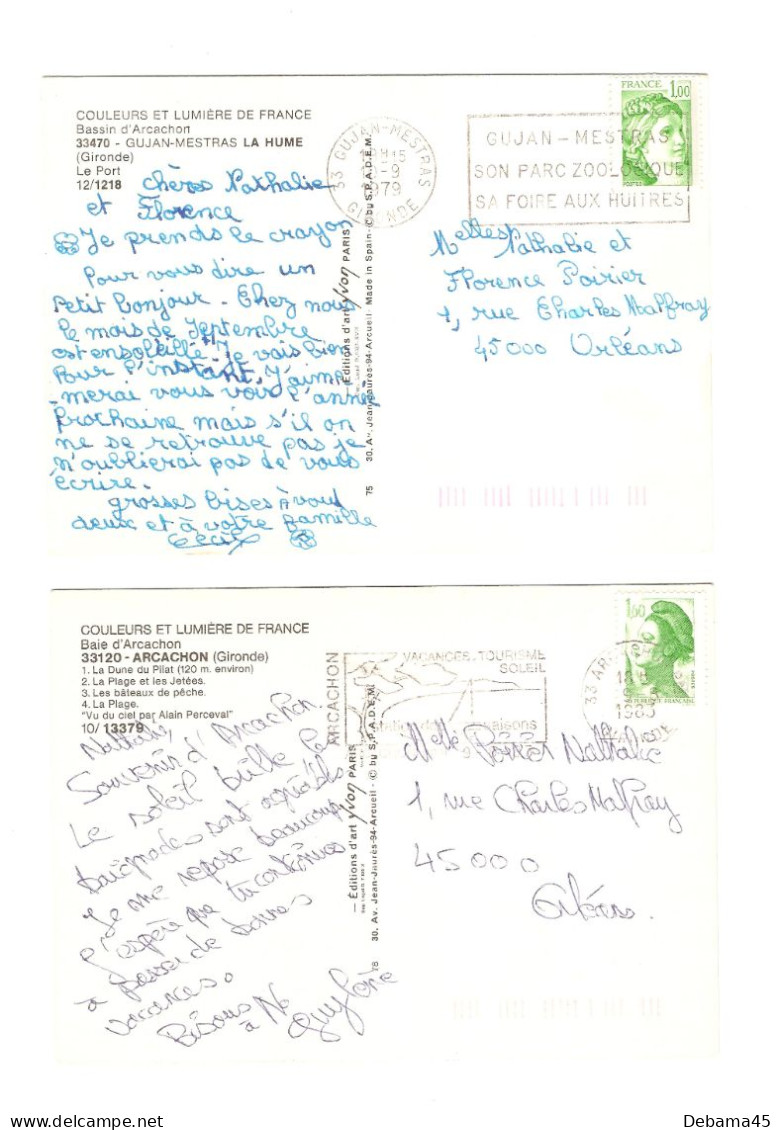 COULEURS ET LUMIÈRE DE FRANCE
Bassin d'Arcachon
33470 - GUJAN-MESTRAS LA HUME
(Gironde)
Le Port
12/1218
chères Nathalie
et Florence
Je prends le crayon
Pour vous dire un
Petit bonjour. Chez nous
le mois de Septembre
est ensoleillé. Je vais bien
Pour l'instant. J'aime
merai vous voir l'année
Prochaine mais s'il on
ne se retrouve pas je
n'oublierai pas de vous
écrire.
grosses bises à vous
deux et à votre famille
Cécile
Éditions d'art yvon PARIS
30. Av. Jean-Jaurès-94-Arcueil - Made in Spain - © by S.P.A.D.E.M.
75
33 GUJAN-MESTRAS
-9
1979
GIRONDE
GUJAN - MESTRAS
SON PARC ZOOLOGIQUE
SA FOIRE AUX HUITRES
FRANCE 1,00
Melles Nathalie et
Florence Poirier
1, rue Charles Malfray
45000 Orléans
COULEURS ET LUMIÈRE DE FRANCE
Baie d'Arcachon
33120 - ARCACHON (Gironde)
1. La Dune du Pilat (120 m. environ)
2. La Plage et les Jetées.
3. Les bâteaux de pêche.
4. La Plage.
"Vu du ciel par Alain Perceval"
10/ 13379
Nathalie,
Souvenir d'Arcachon.
Le soleil brille le
baignades sont agréables
Je me repose beaucoup
J'espère que tu continues
à passer de bonnes
vacances.
Bisous
à No
Guylène
Éditions d'art yvon PARIS
30. Av. Jean-Jaurès-94-Arcueil - © by S.P.A.D.E.M.
78
ARCACHON
VACANCES-TOURISME
SOLEIL
33 ARCACHON
1,60
Melle Poirier Nathalie
1, rue Charles Malfray
45000
Orléans.
Debama45